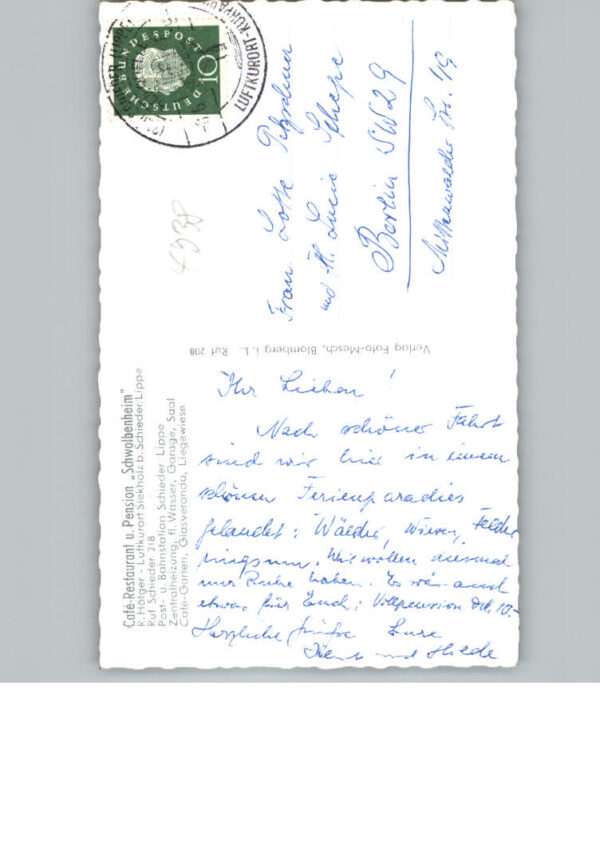 DEUTSCHE BUNDESPOST
10
LUFTKURORT-KURPA
Frau Lotte
und Frl. Lucie Schepe
Berlin SW 29
Mittenwalder Str. 49
4938
Verlag Foto-Mesch, Blomberg i. L. Ruf 208
Café-Restaurant u. Pension „Schwalbenheim"
R. Hölger - Luftkurort Siekholz b. Schieder/Lippe
Ruf Schieder 218
Post- u. Bahnstation Schieder Lippe
Zentralheizung, fl. Wasser, Garage, Saal
Café-Garten, Glasveranda, Liegewiese
Ihr Lieben!
Nach schöner Fahrt
sind wir hier in einem
schönen Ferienparadies
gelandet: Wälder, Wiesen, Felder
ringsum. Wir wollen diesmal
nur Ruhe haben. Es wär auch
etwas für Euch: Vollpension DM. 10.-
Herzliche Grüße Eure
und Hilde